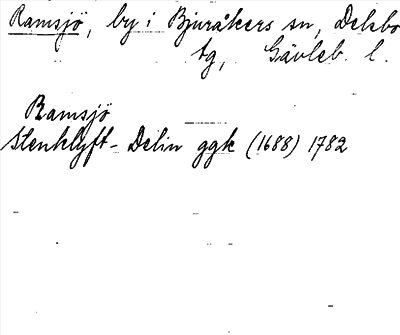 Ramsjö, by i Bjuråkers sn, Delsbo
tg, Gävleb. l.
Ramsjö
Stenklyft-Delin ggk (1688) 1782